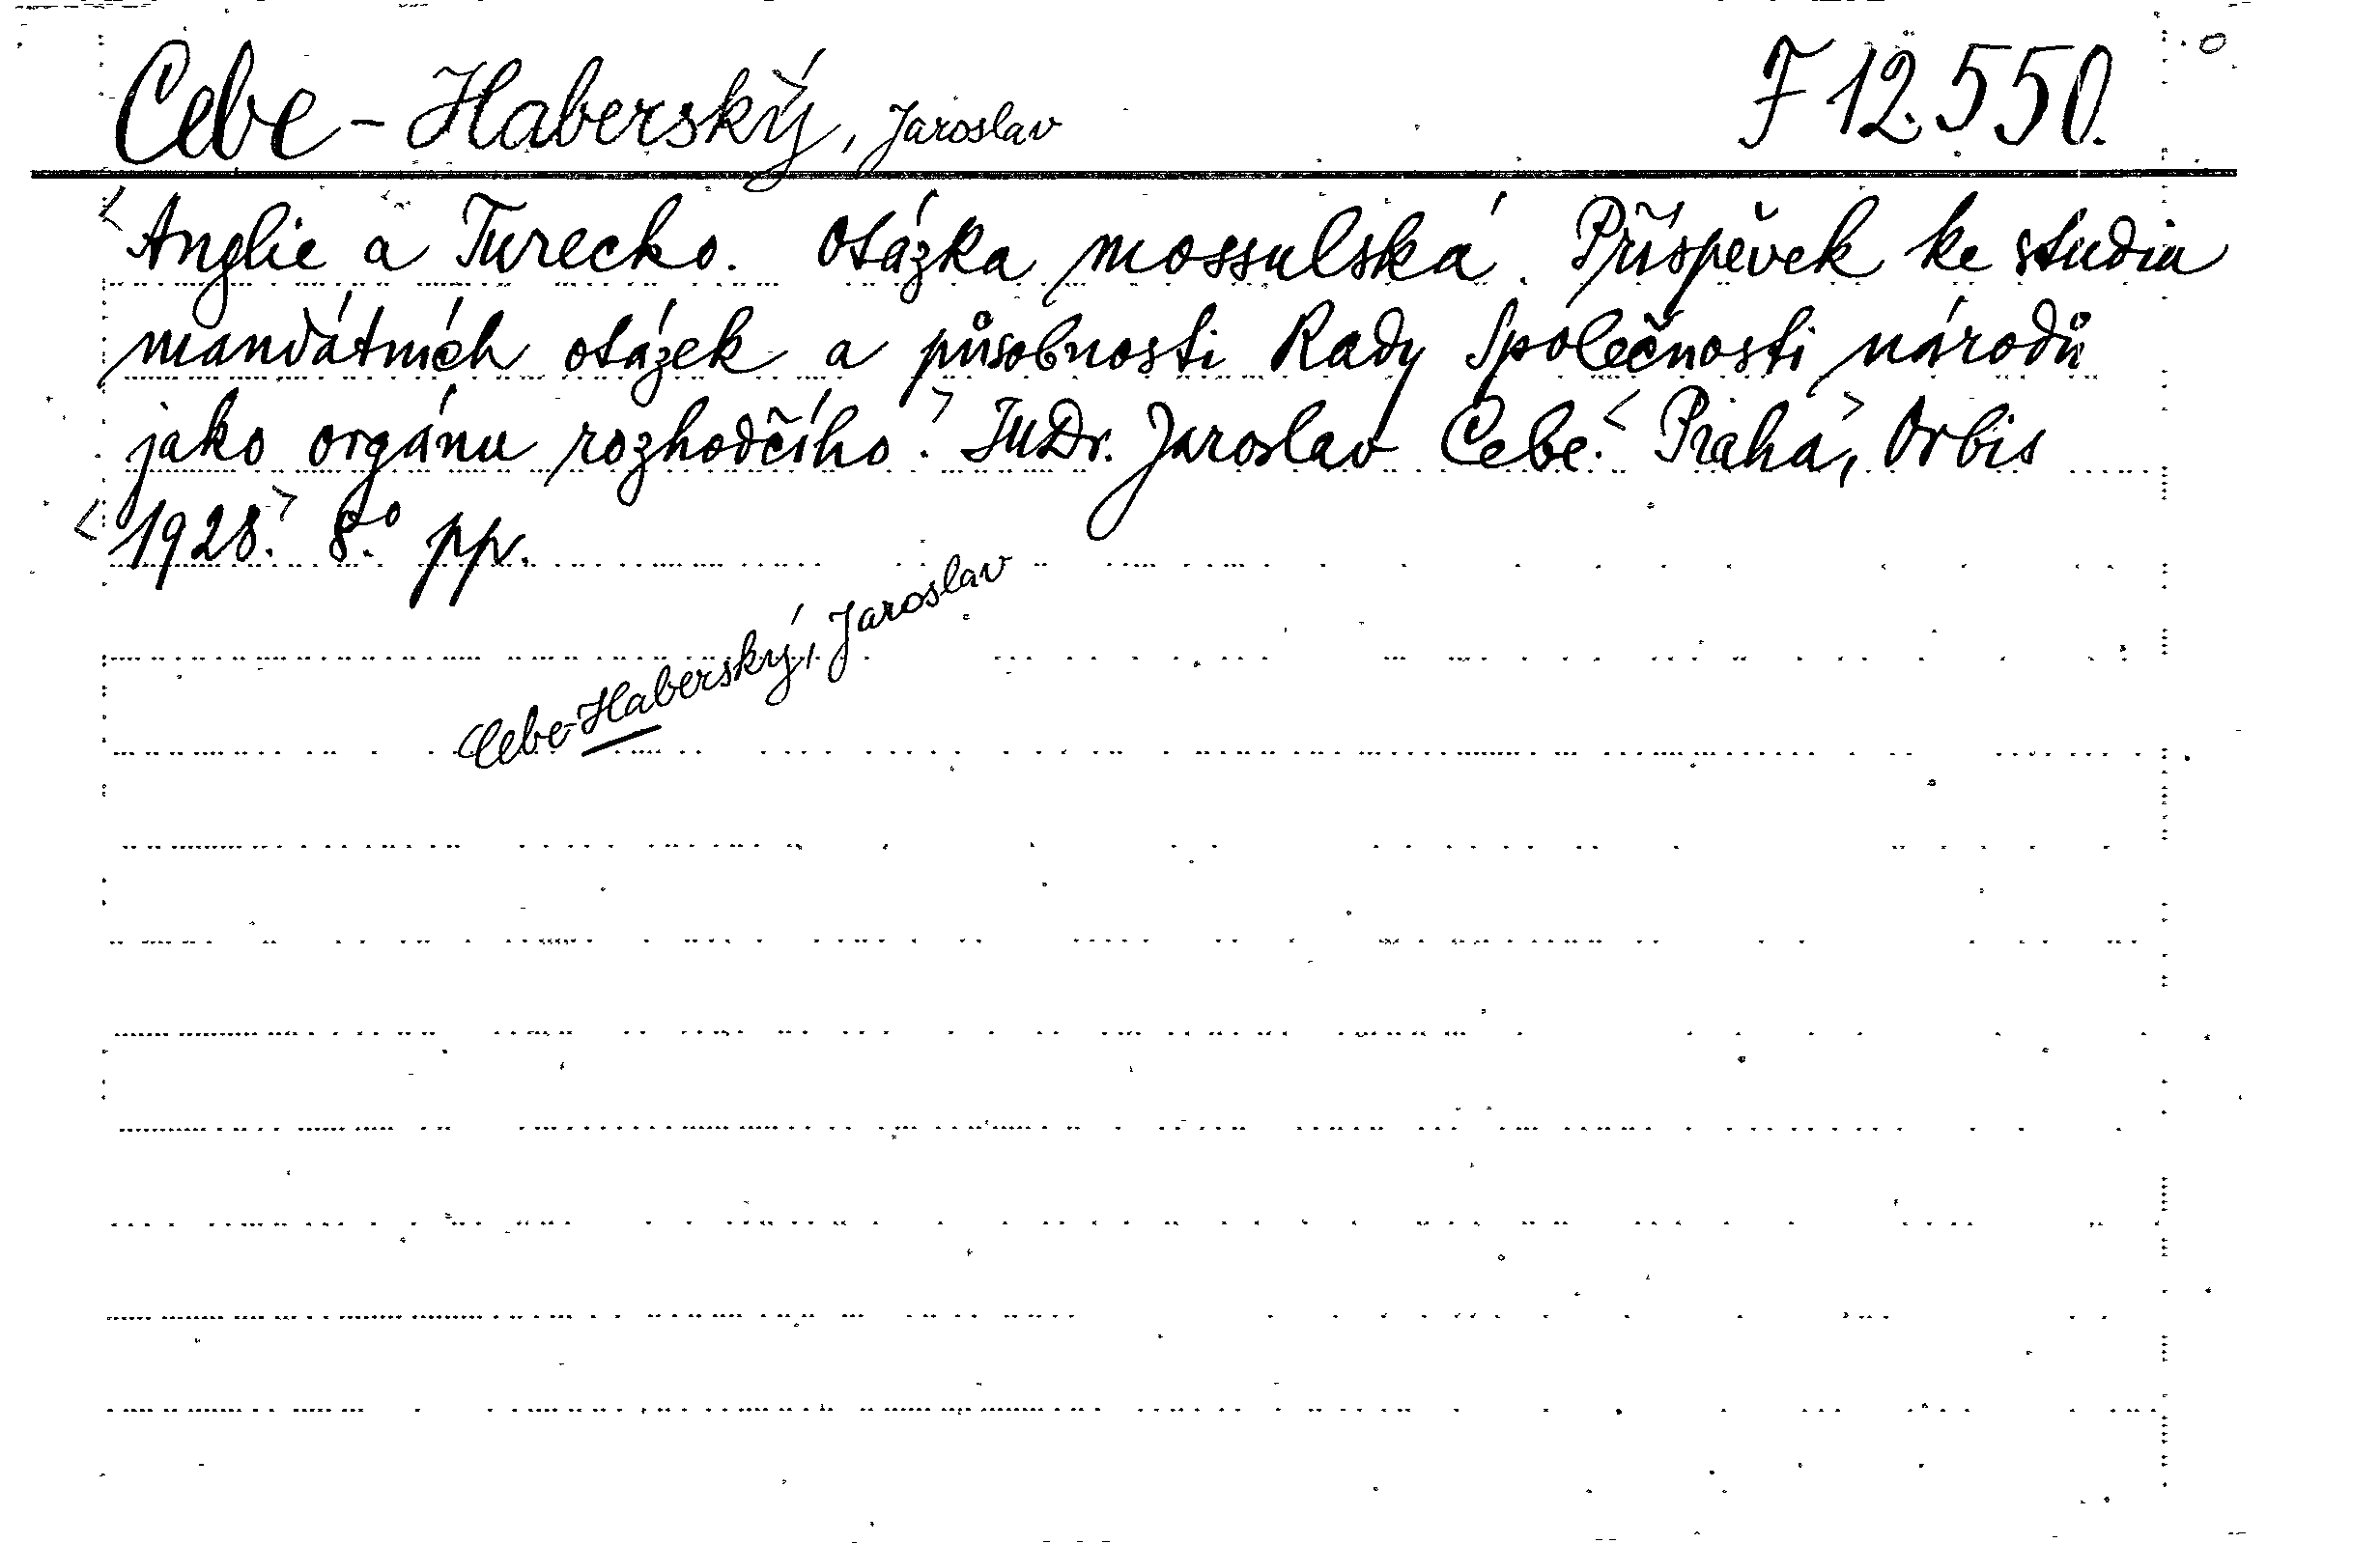 Cebe-Haberský, Jaroslav F 12.550.
<Anglie a Turecko. Otázka mossulská. Příspěvek ke studiu
mandátních otázek a působnosti Rady Společnosti národů
jako orgánu rozhodčího.> JuDr. Jaroslav Cebe. <Praha>, Orbis
<1928.> 8.° pp.
Cebe-Haberský, Jaroslav